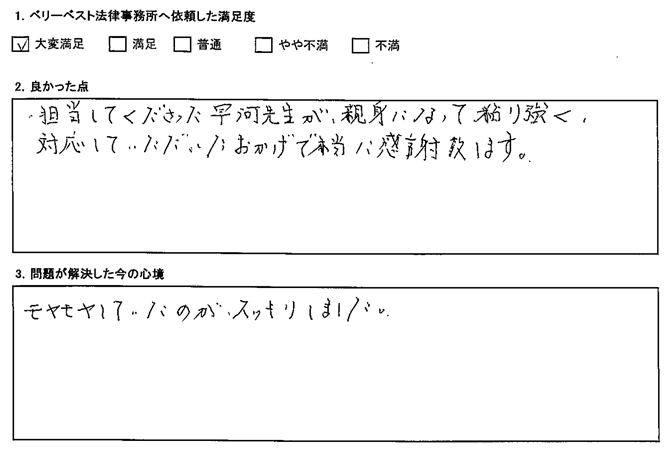 1. ベリーベスト法律事務所へ依頼した満足度
☑ 大変満足 □ 満足 □ 普通 □ やや不満 □ 不満
2. 良かった点
担当してくださった早河先生が、親身になって粘り強く、
対応していただいたおかげで本当に感謝致します。
3. 問題が解決した今の心境
モヤモヤしていたのが、スッキリしました。